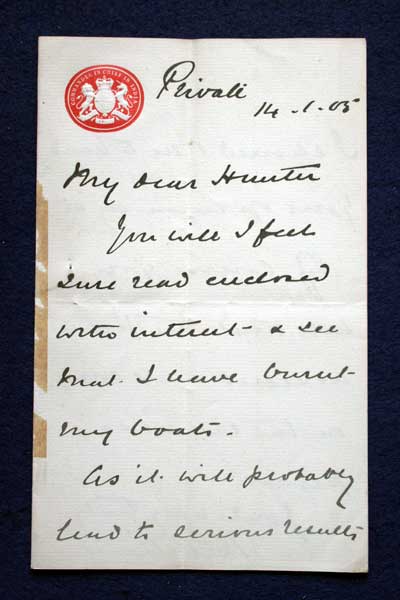 COMMANDER IN CHIEF IN INDIA
Private
14-1-05
My dear Hunter
You will I feel
sure read enclosed
with interest - & see
that I have burnt
my boats.
As it will probably
lead to serious results